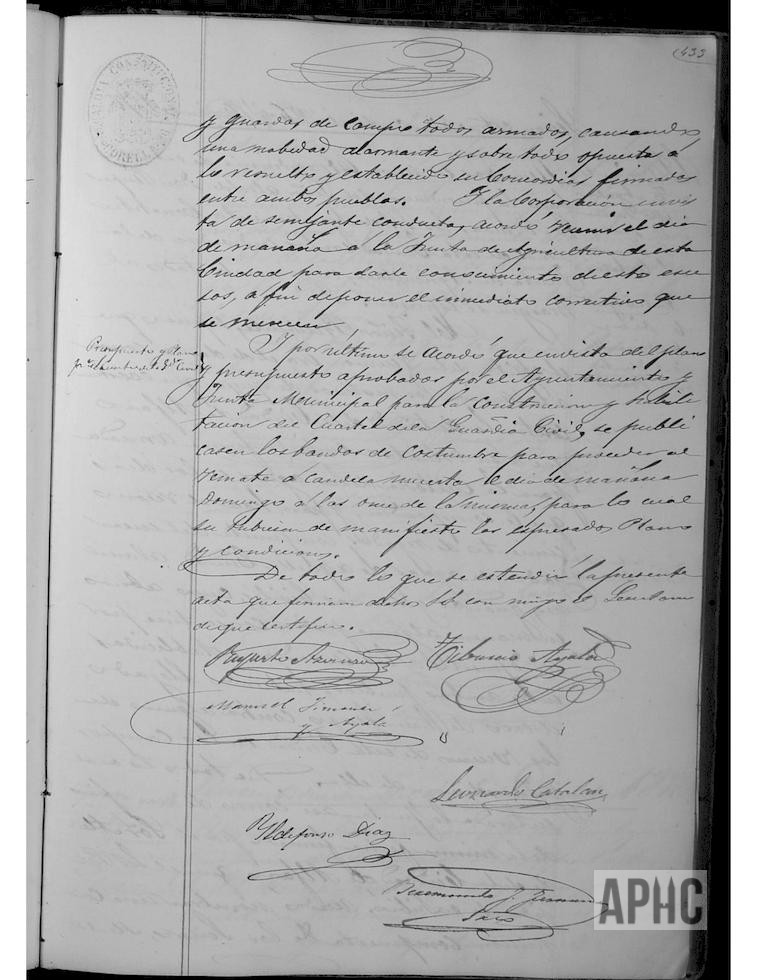 433
y guardas de campo todos armados, causando
una novedad alarmante y sobre todo opuesta á
lo resuelto y establecido en Concordias firmadas
entre ambos pueblos. Y la Corporación en vis
ta de semejante conducta, acordó reunir el dia
de mañana á la Junta de Agricultura de esta
Ciudad para darle conocimiento de estos exce
sos, a fin de poner el inmediato correctivo que
se merecen.
Presupuesto y Plano
Y por último se acordó que en vista del plano
y presupuesto aprobados por el Ayuntamiento y
Junta Municipal para la Construccion y habili
tacion del Cuartel de la Guardia Civil, se publi
casen los bandos de costumbre para proceder al
remate á candela muerta el dia de mañana
Domingo á las once de la misma, para lo cual
se de manifiesto los espresados Plano
y condiciones.
De todo lo que se estendió la presente
acta que firman dichos SS. con migo el Secretario
de que certifico.
Ruperto
Tiburcio Ayala
Manuel Jimenez
y Ayala
Leonardo Catalan
Yldefonso Diaz
Srio
APHC